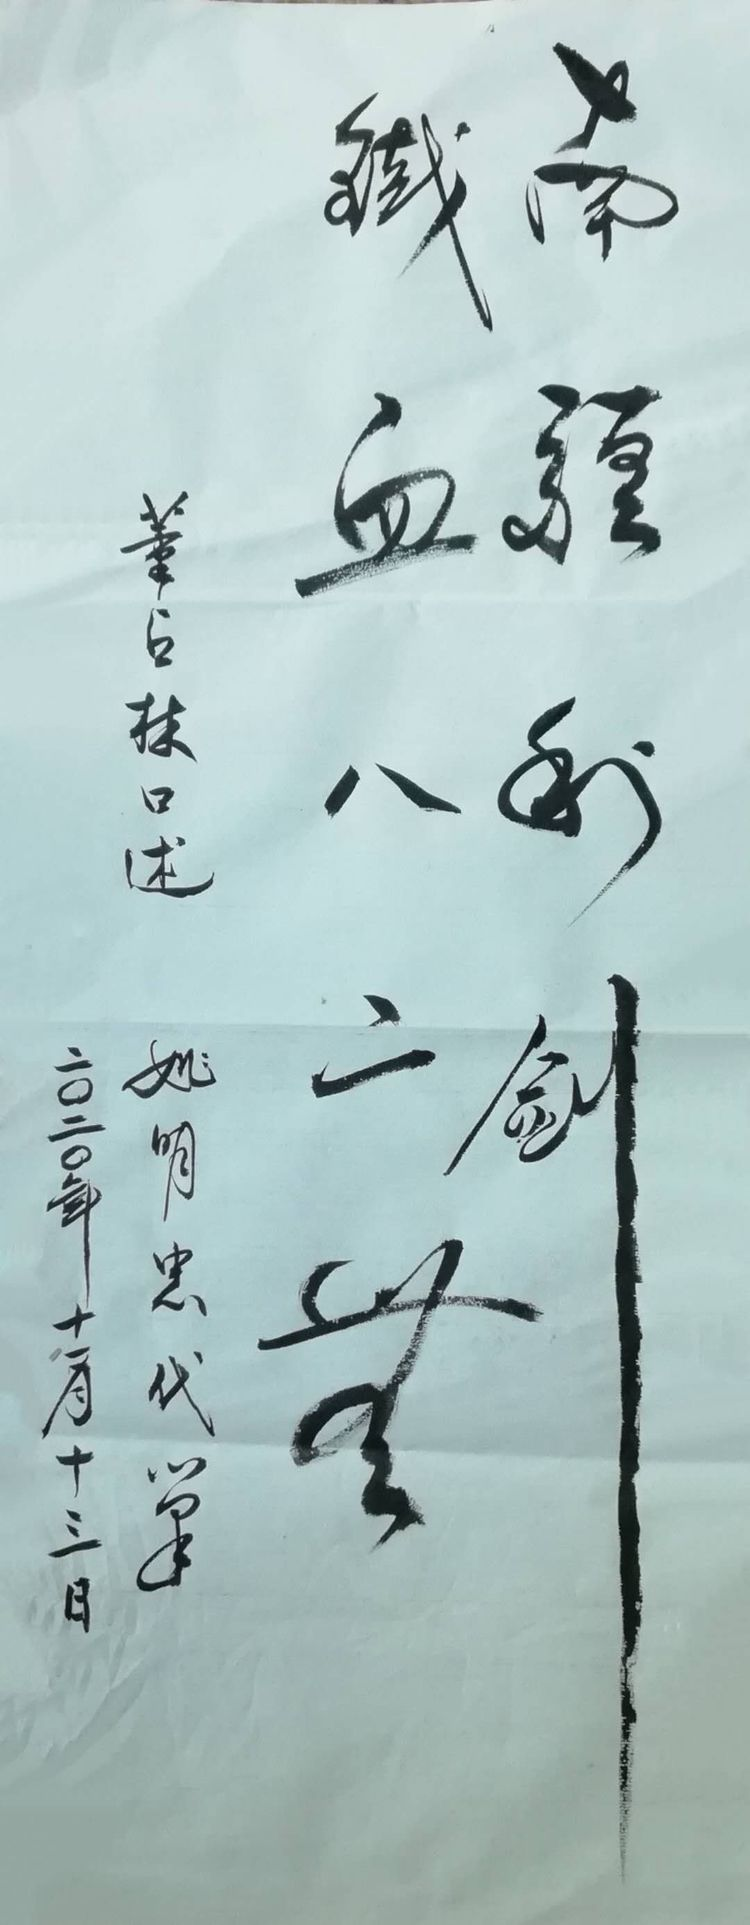 南疆利劍
鐵血八二無
董占林口述
姚明忠代筆
二〇二〇年十一月十三日